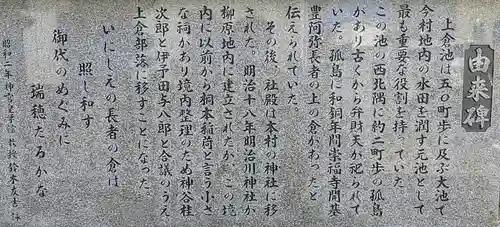 由来碑
上倉池は五〇町歩に及ぶ大池で
今村地内の水田を潤す元池として
最も重要な役割を持っていた。
この池の西北隅に約二町歩の孤島
があり古くから弁財天が祀られて
いた。孤島に和銅年間崇福寺開基
豊阿弥長者の上の倉があったと
伝えられていた。
その後、社殿は本村の神社に移
された。明治十八年明治川神社が
柳原地内に建立されたが、この境
内に以前から桐本稲荷と言う小さ
な祠があり境内整理のため神谷桂
次郎と伊予田与八郎と合議のうえ
上倉部落に移すことになった。
いにしえの長者の倉は
照し和す
御代のめぐみに
瑞穂たるかな